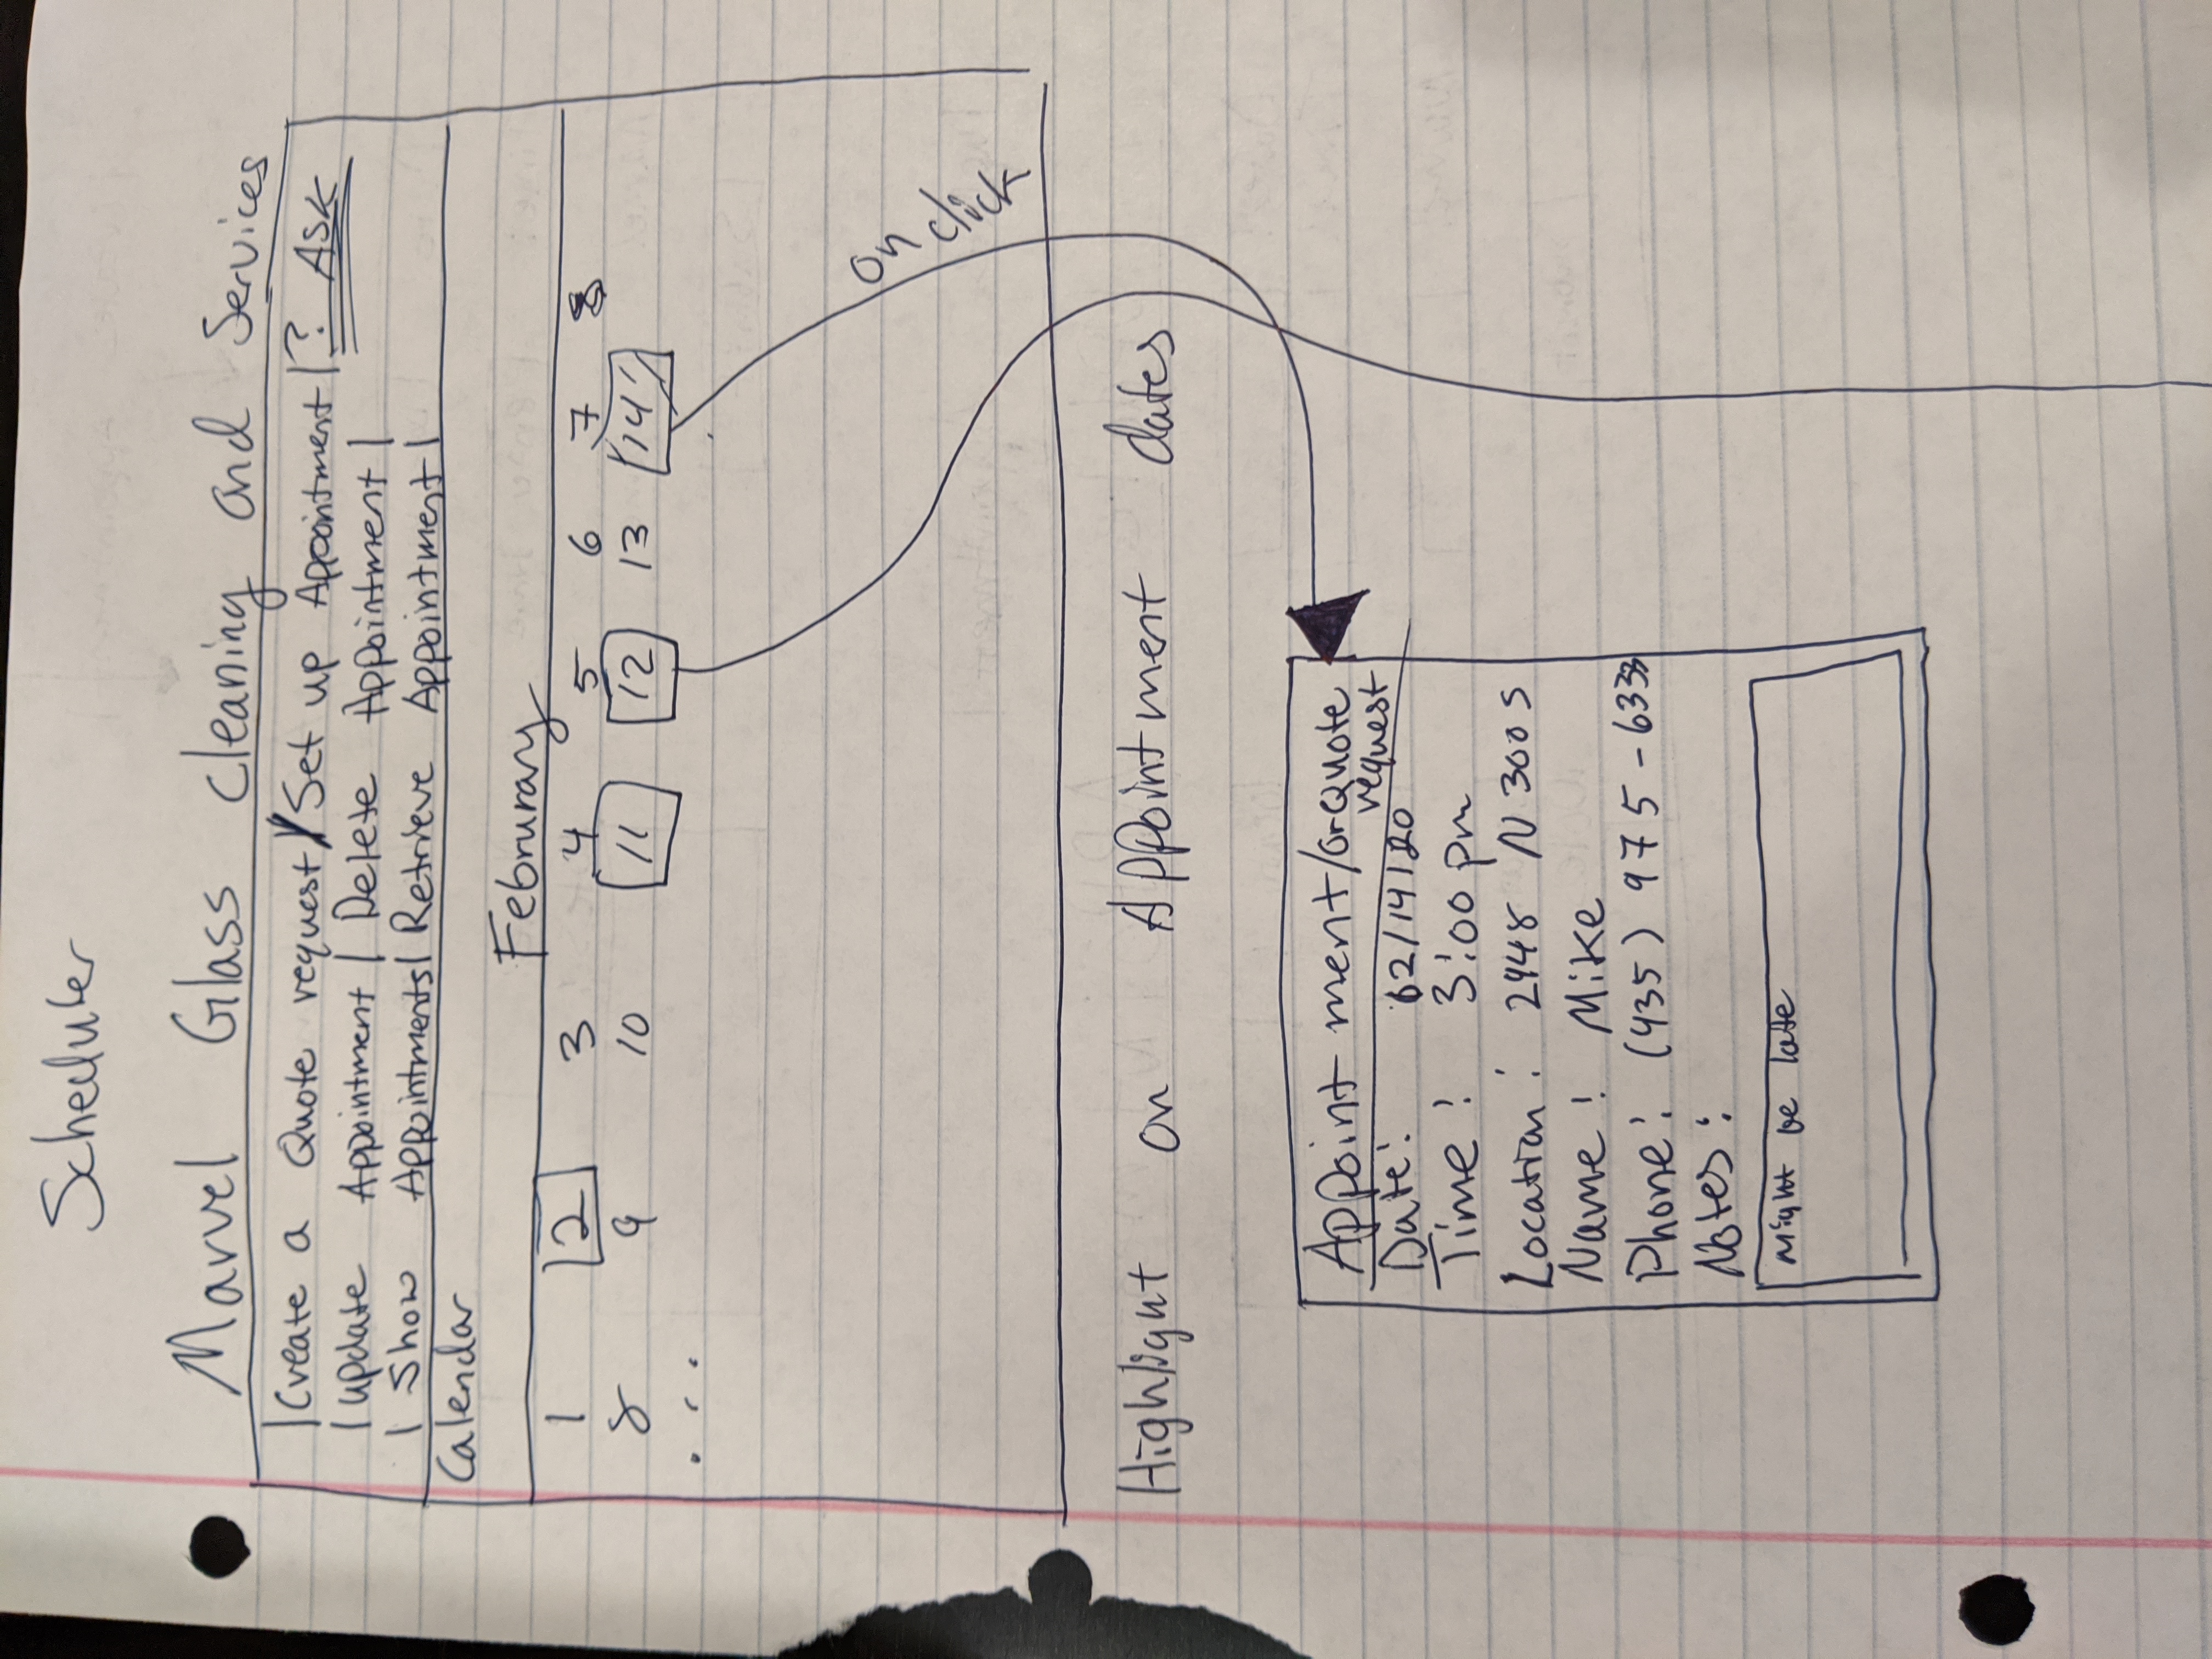 Scheduler
Marvel Glass cleaning and Services
|Create a Quote request| Set up Appointment | ? ASK
| update Appointment | Delete Appointment |
| Show Appointments | Retrieve Appointment |
Calendar
Februrary
1 2 3 4 5 6 7
8 9 10 11 12 13 14
...
on click
Highlight on Appointment dates
Appointment/or Quote
request
Date: 02/14/20
Time: 3:00 pm
Location: 2948 N 300 S
Name: Mike
Phone: (435) 975-6333
Notes:
Might be late